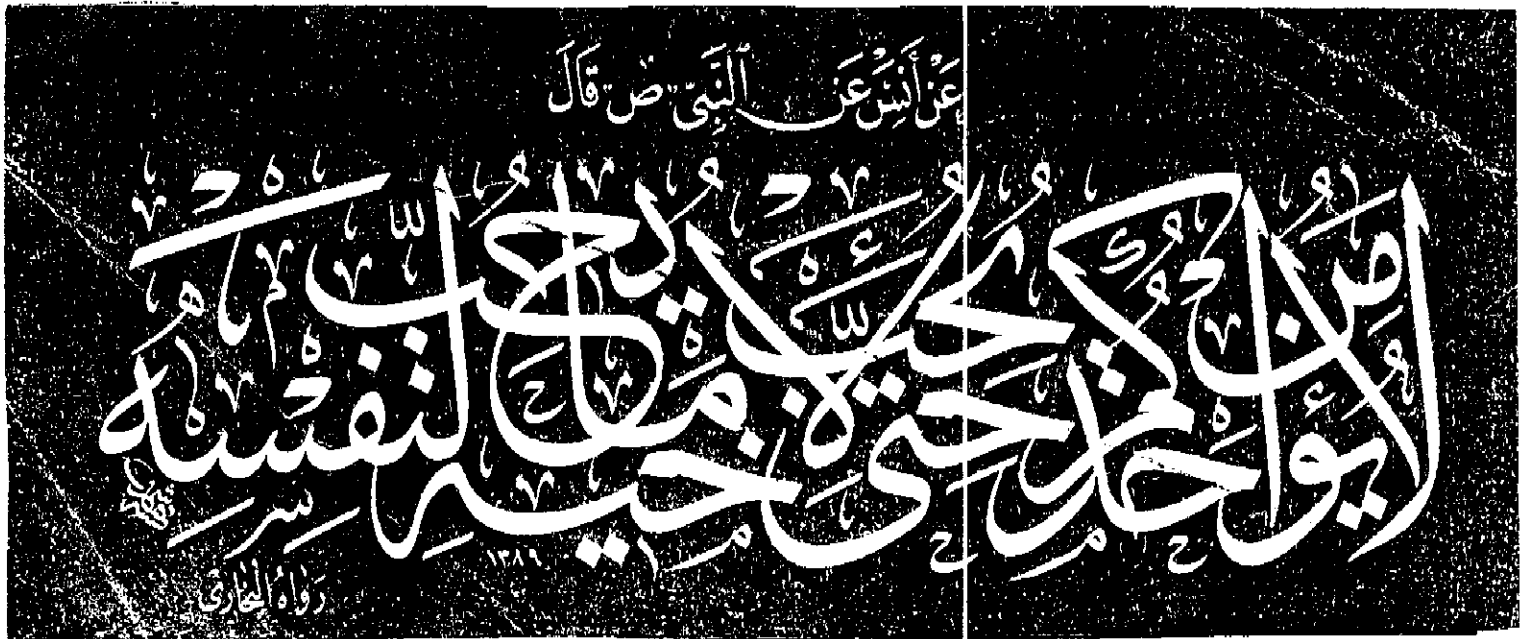 عَنْ أَنَسٍ عَنِ ٱلنَّبِيِّ ص قَالَ
لا يؤمن أحدكم حتى يحب لأخيه ما يحب لنفسه
١٣٨٩
رَوَاهُ الْبُخَارِي